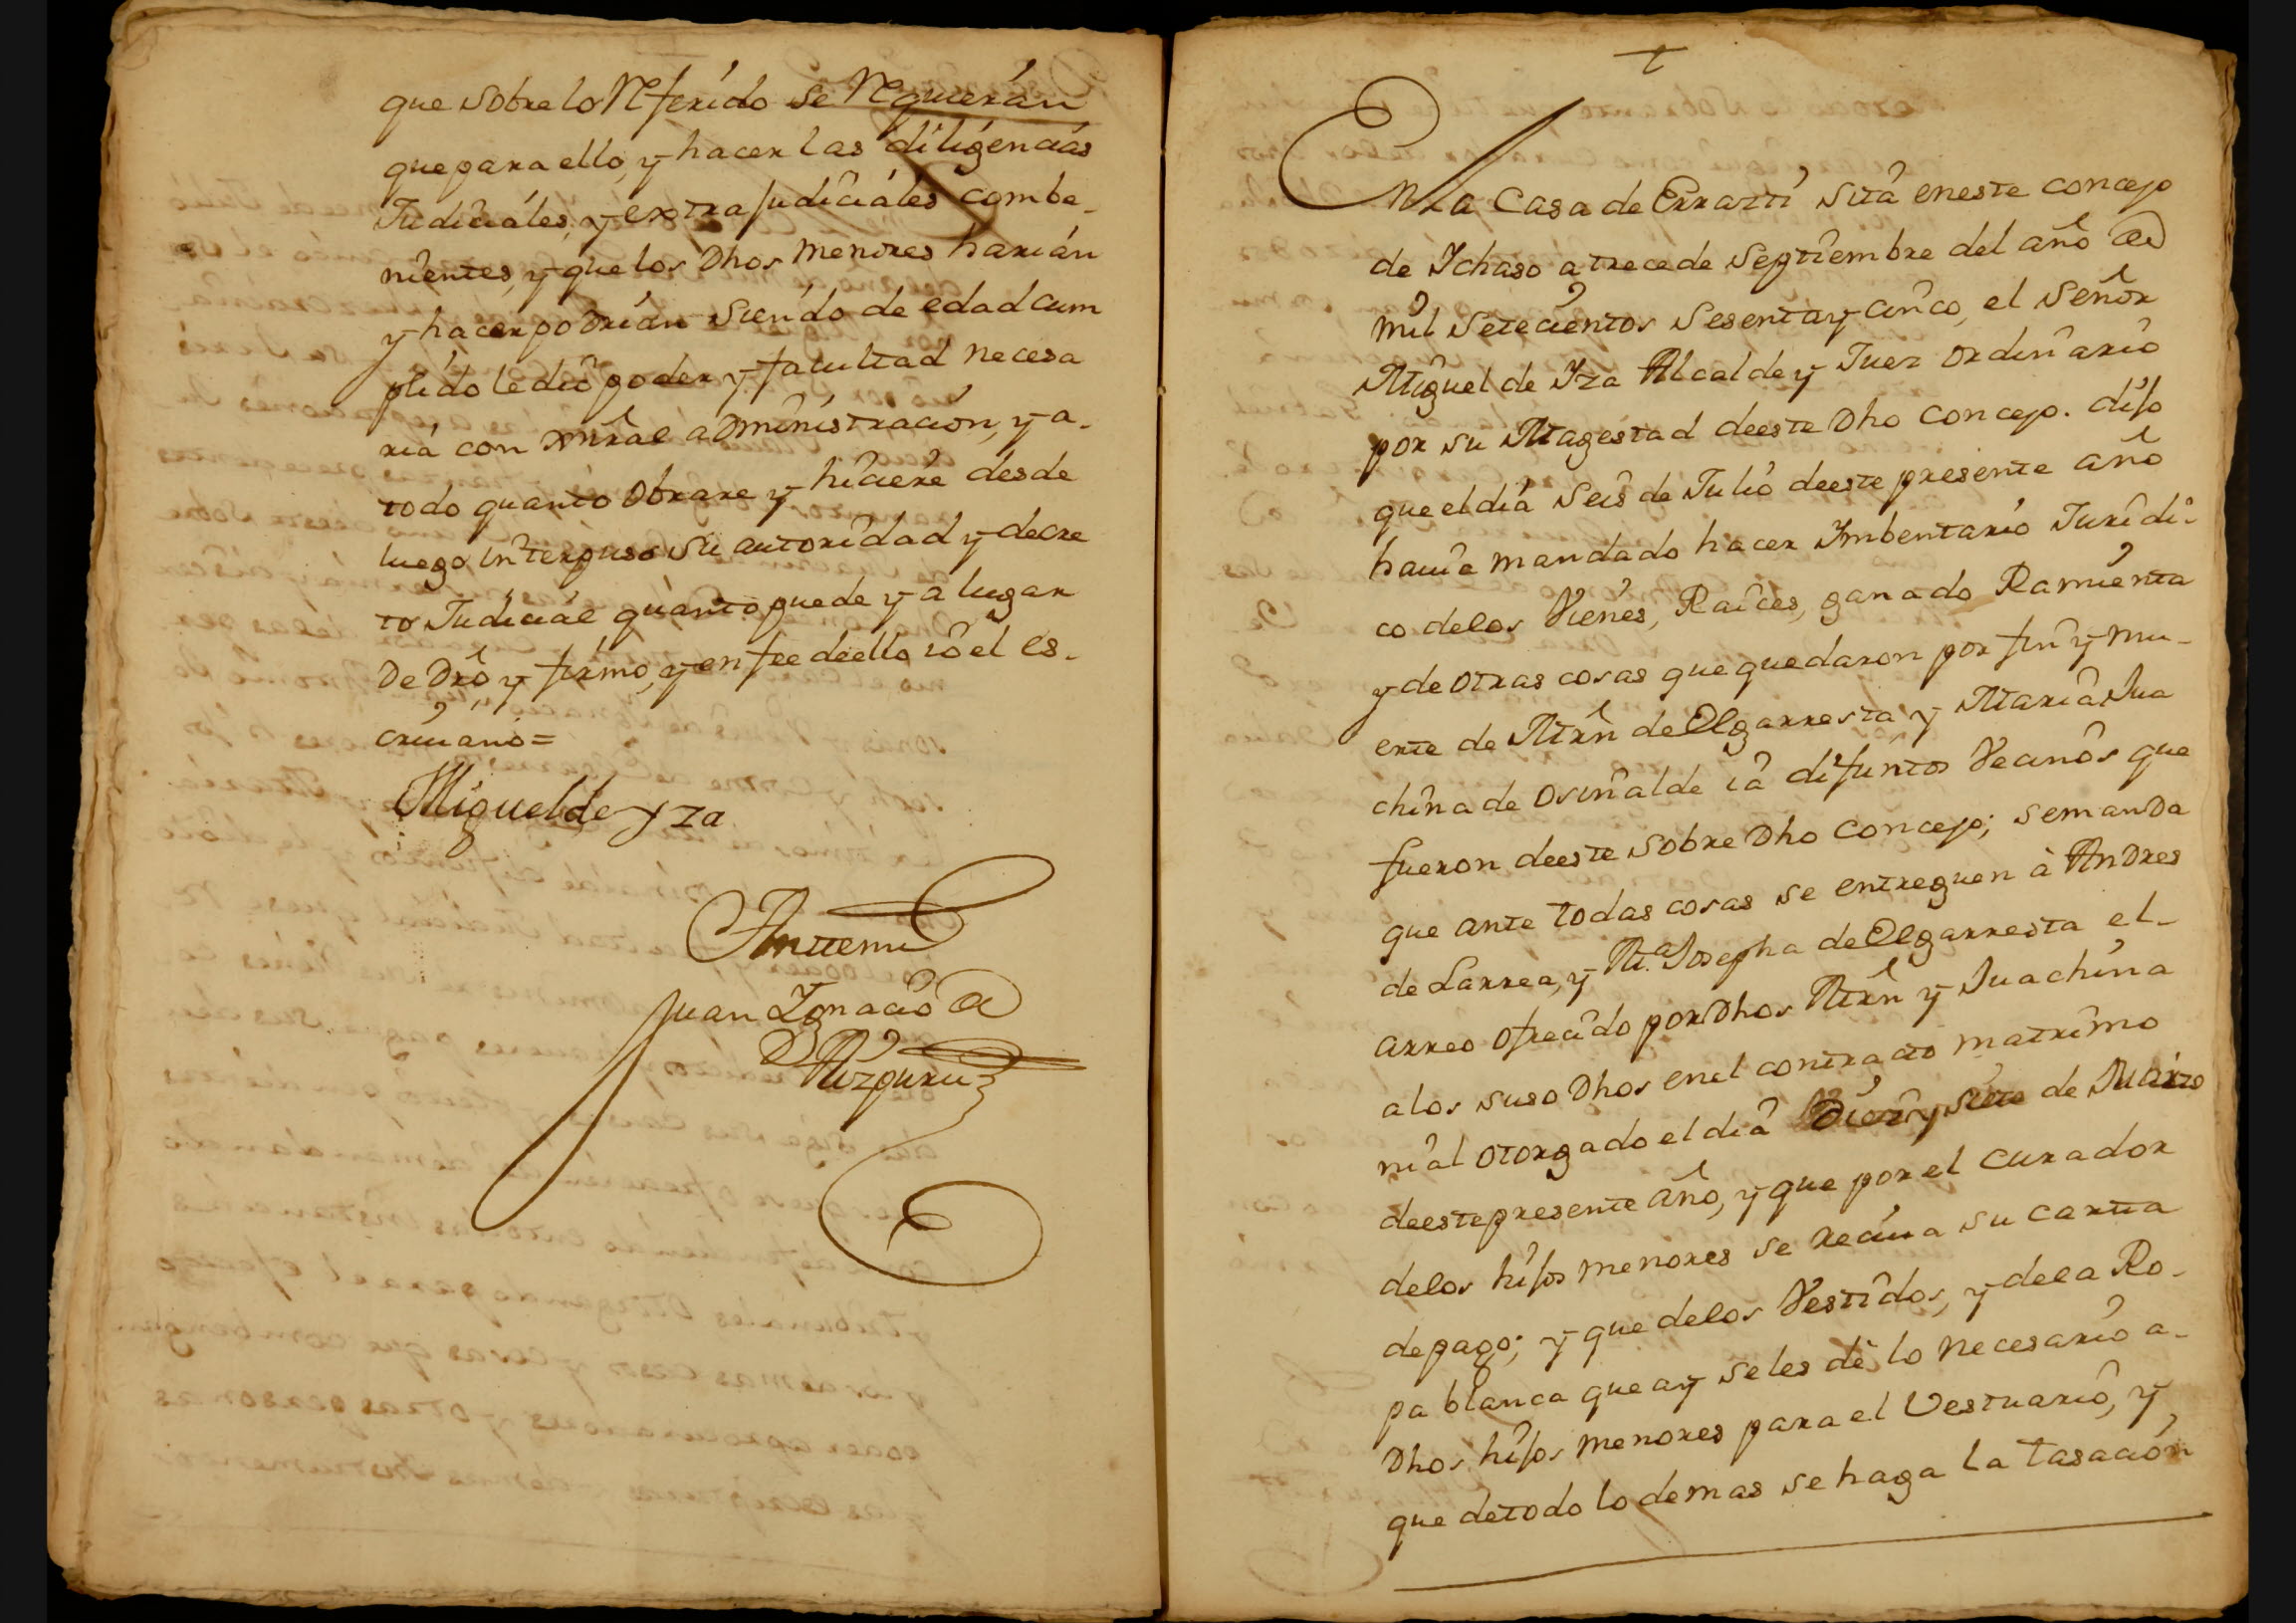 que sobre lo Referido se Requieran
que para ello, y hacer las diligencias
Judiciales, y extrajudiciales combe-
nientes, y que los Dhos menores harian
y hacer podrian siendo de edad cum
plido le dio poder y facultad necesa
ria con xnral administracion, y a-
todo quanto obrare y hiciere desde
luego interpuso su autoridad y decre
to Judicial quanto puede y a lugar
De Dro y firmo, y en fee de ello io el es-
crivano=
Miguel de Yza
Antemi
Juan Ygnacio de
Aizpuru
En La Casa de Errazti sita en este concejo
de Ychaso a trece de Septiembre del año de
mil setecientos sesenta y cinco, el señor
Miguel de Yza Alcalde y Juez ordinario
por su Magestad de este Dho concejo. dijo
que el dia seis de Julio de este presente año
havia mandado hacer Imbentario Juridi-
co de los Vienes, Raices, ganado Ramienta
y de otras cosas que quedaron por fin y mu-
erte de Mrn de Elgarresta y Maria Jua
china de Osinalde ia difuntos Vecinos que
fueron de este sobre Dho concejo; se manda
que ante todas cosas se entreguen à Andres
de Larrea, y Ma. Josepha de Elgarresta el-
arreo ofrecido por Dhos Mrn y Juachina
a los suso Dhos en el contracto matrimo
nial otorgado el dia Diez y siete de Marzo
de este presente año, y que por el curador
de los hijos menores se reciva su carta
de pago; y que de los Vestidos, y de la Ro-
pa blanca que ay se les dè lo necesario a-
Dhos hijos menores para el Vestuario, y
que de todo lo demas se haga la tasacion